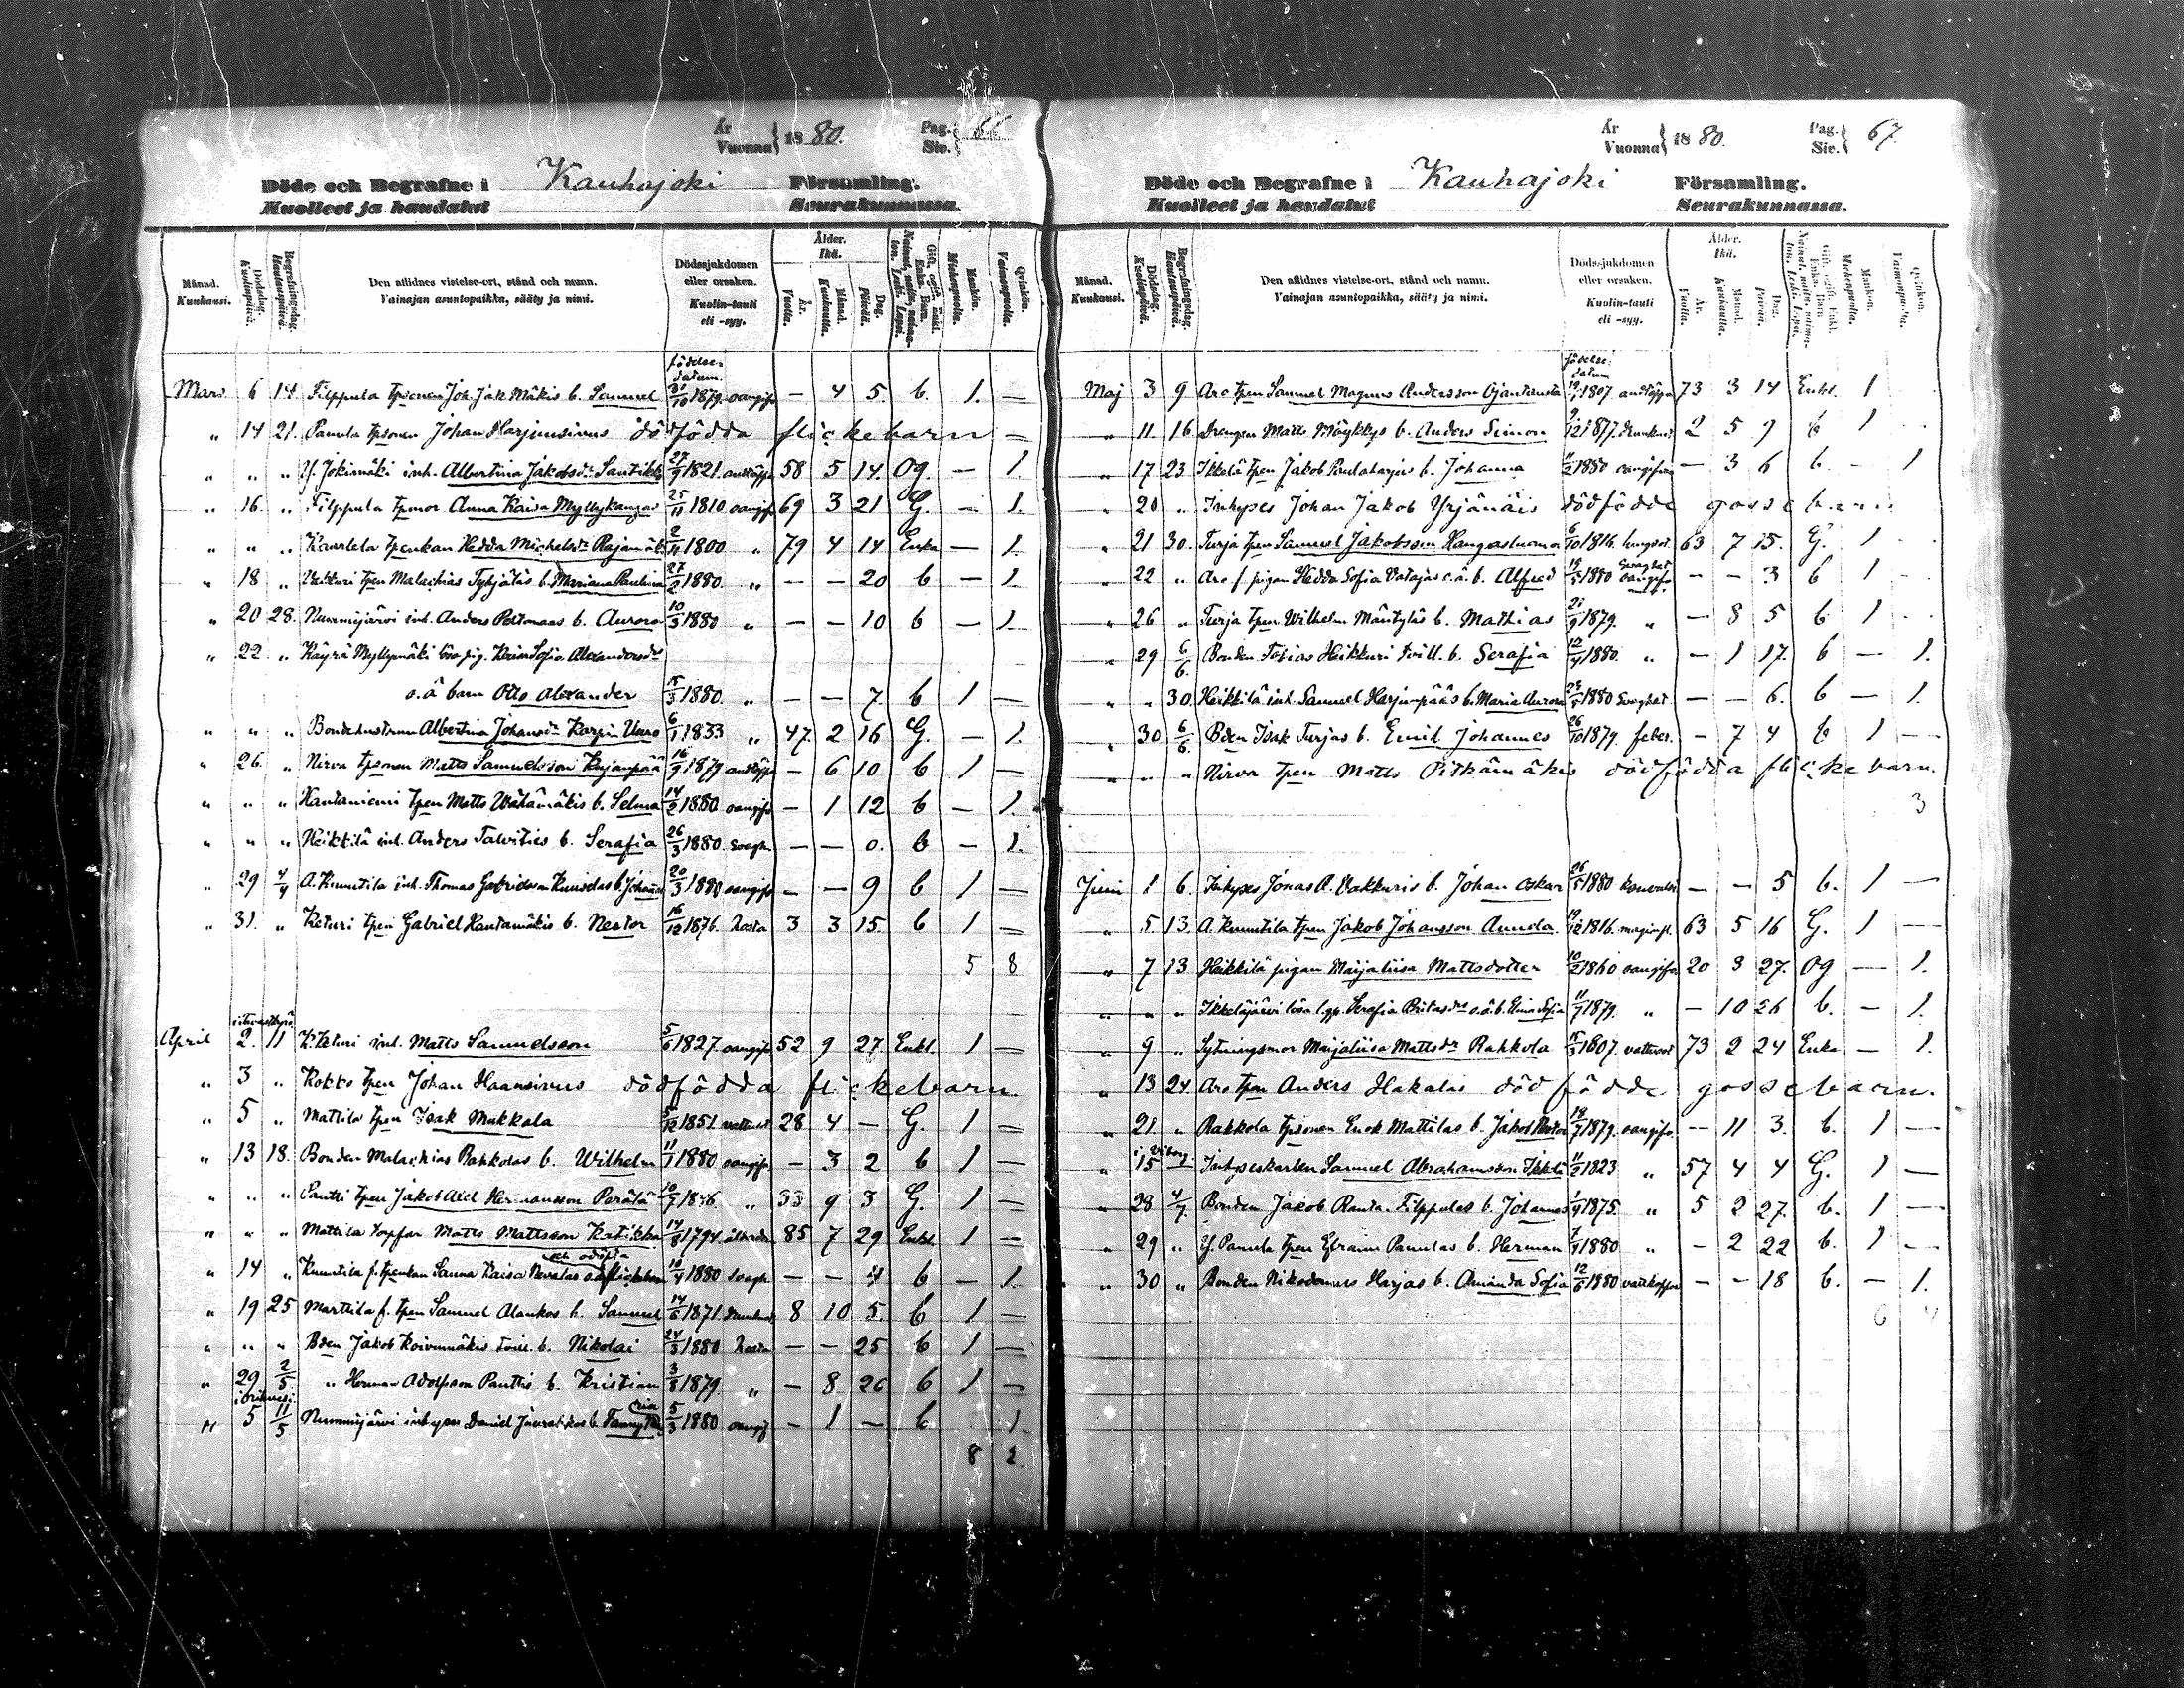 År Vuonna } 1880. Pag. Siv. { 66
Döde och Begrafne i Kauhajoki Församling.
Kuolleet ja haudatut Seurakunnassa.
Månad. Kuukausi. Dödsdag. Kuolinpäivä. Begrafningsdag. Hautauspäivä. Den aflidnes vistelse-ort, stånd och namn. Vainajan asuntopaikka, sääty ja nimi. Dödssjukdomen eller orsaken. Kuolin-tauti eli -syy. Ålder. Ikä. År. Vuotta. Månad. Kuukautta. Dag. Päivää. Mankön. Miehenpuolta. Qvinkön. Vaimonpuolta.
födelse-datum.
Mars 6 14 Filppula tpsonen Joh. Jak. Mäkis b. Samuel 31/10 1879. oangifv. — 4 5. b. 1. —
„ 14 21. Panula tpsonen Johan Harjunsivus dödfödda flickebarn —
„ „ „ Y. Jokimäki inh. Albertina Jakobsdr Santikko 27/9 1821. andtäppa 58 5 14. Og. — 1.
„ 16. „ Filppula tpmor Anna Kaisa Myllykangas 25/11 1810 oangifv 69 3 21 G. — 1.
„ „ „ Kaarlela tpenkan Hedda Michelsdr Rajamäki 2/11 1800 „ 79 4 14 Enka — 1.
„ 18 „ tpen Malachias b. Mariana Paulina 27/2 1880. „ — — 20 b — 1.
„ 20 28. Nummijärvi inh. Anders Peltomaas b. Aurora 10/3 1880 „ — — 10 b — 1.
„ 22 „ Käyrä Myllymäki lösa pig. Sofia Alexandersdr
o.ä barn Otto Alexander 15/3 1880. „ — — 7. b 1 —
„ „ „ Bondehustrun Albertina Johansdr Karpin Uuro 6/1 1833 „ 47. 2 16 G. — 1.
„ 26 „ Nirva tpsonen Matts Samuelsson Kujanpää 16/9 1879 andtäppa — 6 10 b 1 —
„ „ „ Hautaniemi tpen Matts Wähämäkis b. Selma 14/2 1880 oangifv — 1 12 b — 1.
„ „ „ Heikkilä inh. Anders Talvities b. Serafia 26/3 1880. svagh. — — 0. b — 1.
„ 29 4/4 A. Knuutila inh. Thomas Gabrielsson b. Johannes 20/3 1880 oangifv — — 9 b 1 —
„ 31. „ Keturi tpen Gabriel Hautamäkis b. Nestor 16/12 1876. hosta 3 3 15. b 1 —
5 8
April 2. 11 K. Keturi inh. Matts Samuelsson 5/6 1827. oangifv 52 9 27. Enkl. 1 —
„ 3 „ Kokko tpen Johan Haansivus dödfödda flickebarn
„ 5 „ Mattila tpen Isak Mukkala 5/12 1851. 28 4 — G. 1 —
„ 13 18. Bonden Malachias Rahkolas b. Wilhelm 11/1 1880 oangifv — 3 2 b 1 —
„ „ „ Pantti tpen Jakob Axel Hermansson Perälä 10/7 1846. „ 33 9 3 G. 1 —
„ „ „ Mattila Matts Mattsson Katikka 14/8 1794. ålderdom 85 7 29 Enkl 1 —
„ 14 „ Knuutila f. tpenkan Sanna Kaisa Nevalas 10/4 1880 svagh. — — 4 b — 1.
„ 19 25 Marttila f. tpen Samuel Alankos b. Samuel 14/6 1871. 8 10 5. b 1 —
„ „ „ Bden Jakob Koivumäkis b. Nikolai 24/3 1880 hosta — — 25 b 1 —
„ 29 2/5 „ Herman Adolfsson Panttis b. Kristian 3/8 1879. „ — 8 26 b 1 —
„ 5 11/5 Nummijärvi Daniel b. Fanny 5/3 1880 oangif — 1 — b 1
8 2.
År Vuonna } 1880. Pag. Siv. { 67.
Döde och Begrafne i Kauhajoki Församling.
Kuolleet ja haudatut Seurakunnassa.
Månad. Kuukausi. Dödsdag. Kuolinpäivä. Begrafningsdag. Hautauspäivä. Den aflidnes vistelse-ort, stånd och namn. Vainajan asuntopaikka, sääty ja nimi. Dödssjukdomen eller orsaken. Kuolin-tauti eli -syy. Ålder. Ikä. År. Vuotta. Månad. Kuukautta. Dag. Päivää. Mankön. Miehenpuolta. Qvinkön. Vaimonpuolta.
födelse-datum
Maj 3 9 Aro tpen Samuel Magnus Andersson Ojantausta 19/1 1807 andtäppa 73 3 14 Enkl. 1
„ 11. 16. Drengen Matts Möykkys b. Anders Simon 2/12 1877. drunknat 2 5 9 b 1
„ 17 23. Ikkelä tpen Jakob b. Johanna 11/2 1880 oangifven — 3 6 b. — 1
„ 20 „ Inhyses Johan Jakob Yrjänäis dödfödde gossebarn
„ 21 30. Turja tpen Samuel Jakobsson Hangasluoma 6/10 1816. lungsot. 63 7 15. G. 1
„ 22 „ Aro f. pigan Hedda Sofia Vatajas o.ä. b. Alfred 19/5 1880 svaghet — — 3 b 1
„ 26 „ Turja tpen Wilhelm Mäntyläs b. Mathias 21/9 1879. „ — 8 5 b 1
„ 29 6/6. Bonden Tobias Heikkuri tvill. b. Serafia 12/4 1880. „ — 1 17. b — 1.
„ „ 30. Heikkilä inh. Samuel Harjunpääs b. Maria Aurora 24/5 1880 svaghet — — 6. b — 1.
„ 30 6/6. Bden Isak Turjas b. Emil Johannes 26/10 1879. feber. — 7 4 b 1 —
„ „ „ Nirva tpen Matts Pitkämäkis dödfödda flickebarn.
3
Juni 1 6. Inhyses Jonas A. Vakkuris b. Johan Oskar 26/5 1880 — — 5 b. 1 —
„ 5 13. A. Knuutila tpen Jakob Johansson Aunola 19/12 1816. 63 5 16 G. 1 —
„ 7 13 Heikkilä pigan Maijaliisa Mattsdotter 10/2 1860 oangifv 20 3 27. Og — 1.
„ „ „ Ikkeläjärvi Serafia o.ä. b. Elina Sofia 11/7 1879. „ — 10 26 b. — 1.
„ 9 „ Sytningsmor Maijaliisa Mattsdr Rahkola 15/3 1807. vattusot 73 2 24 Enka — 1.
„ 13 24 Aro tpen Anders Hakalas dödfödde gossebarn.
„ 21 „ Rahkola tpsonen Enok Mattilas b. Jakob Nestor 18/7 1879. oangifv. — 11 3. b. 1 —
„ i Wiborg 15 Inhyseskarlen Samuel Abrahamsson Ikkelä 11/2 1823 „ 57 4 4 G. 1 —
„ 28 4/7. Bonden Jakob Ranta-Filppulas b. Johannes 1/4 1875. „ 5 2 27. b. 1 —
„ 29 „ Y. Panula tpen Efraim Panulas b. Herman 7/4 1880 „ — 2 22 b. 1 —
„ 30 „ Bonden Nikodemus Harjas b. Amanda Sofia 12/6 1880 vattkoppor — — 18 b. — 1.
6 4